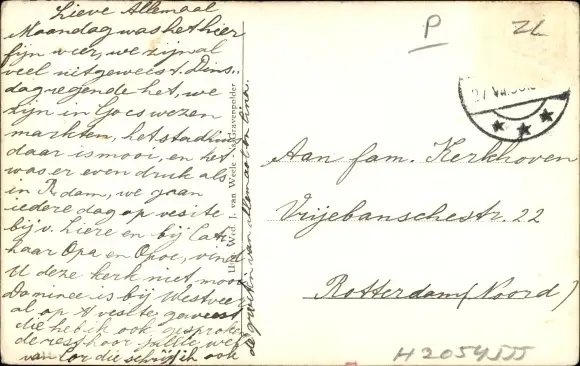 Lieve Allemaal
Maandag was het hier
fijn weer, we zijn al
veel uitgeweest. Dins-
dag regende het, we
zijn in Goes wezen
markten, het stadhuis
daar is mooi, en het
was er even druk als
in R.dam, we gaan
iedere dag op vesite
bij v. Liere en bij
haar Opa en Opoe, vind
U deze kerk niet mooi
Dominee is bij Westvee
al op vesite geweest
die heb ik ook gesproke
de rest hoor jullie wel
van Cor die schrijf ik ook
de groeten van allemaal
Uitg. Wed. J. van Weele - 's-Gravenpolder
P
Aan fam. Kerkhoven
Vrijebanschestr. 22
Rotterdam (Noord)
H2054